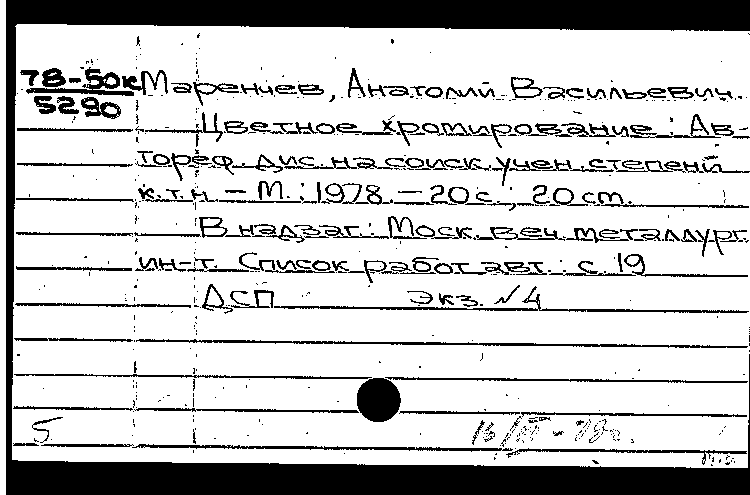 78-50к Маренчев, Анатолий Васильевич.
5290
Цветное хромирование : Ав-
тореф. дис. на соиск. учен. степени
к.т.н. – М. : 1978. – 20 с. ; 20 cm.
В надзаг.: Моск. веч. металлург.
ин-т. Список работ авт.: с. 19
ДСП экз. №4
5 16/III - 78г.